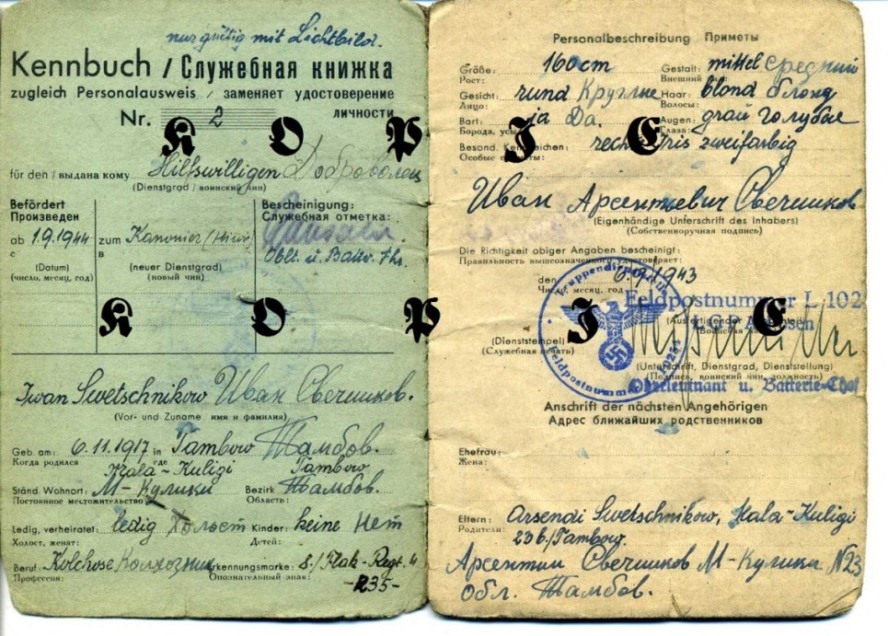 nur gültig mit Lichtbild.
Kennbuch / Служебная книжка
zugleich Personalausweis / заменяет удостоверение личности
Nr. 2
KOPIE
für den / выдана кому Hilfswilligen Доброволец
(Dienstgrad / воинский чин)
Befördert
Произведен
Bescheinigung:
Служебная отметка:
ab 1.9.1944 zum Kanonier
с в
Oblt. u. Battr. Fhr.
(Datum) (neuer Dienstgrad)
(число, месяц, год) (новый чин)
KOPIE
Iwan Swetschnikow Иван Свечников.
(Vor- und Zuname имя и фамилия)
Geb. am: 6.11.1917 in Tambow Тамбов.
Когда родился где
Mala-Kuligi Tambow
Ständ. Wohnort: М-Кулики Bezirk Тамбов.
Постоянное местожительство Область:
Ledig, verheiratet: ledig Холост Kinder: keine Нет
Холост, женат: Детей:
Beruf: Kolchose Колхозник Erkennungsmarke: 8./Flak-Regt. 4
Профессия: Опознавательный знак:
-235-
Personalbeschreibung Приметы
Größe: 160 cm Gestalt: mittel Средний
Рост: Внешний
Gesicht: rund Круглие Haar: blond блонд
Лицо: Волосы:
Bart: ja Да. Augen: grau голубые
Борода, усы Глаза:
Besond. Kennzeichen: rechte Iris zweifarbig
Особые приметы:
Иван Арсентиевич Свечников
(Eigenhändige Unterschrift des Inhabers)
(Собственноручная подпись)
Die Richtigkeit obiger Angaben bescheinigt:
Правильность вышеозначенного удостоверяет:
den 6.9.1943
Число, месяц, год
Feldpostnummer L 102
L.G.P.A.
(Dienststempel)
(Служебная печать)
(Unterschrift, Dienstgrad, Dienststellung)
(Подпись, воинский чин, должность)
Oberleutnant u. Batterie-Chef
Anschrift der nächsten Angehörigen
Адрес ближайших родственников
Ehefrau:
Жена:
Eltern: Arsenai Swetschnikow, Mala-Kuligi
Родители: 236./Tambow.
Арсентии Свечников М-Кулики N23
обл. Тамбов.